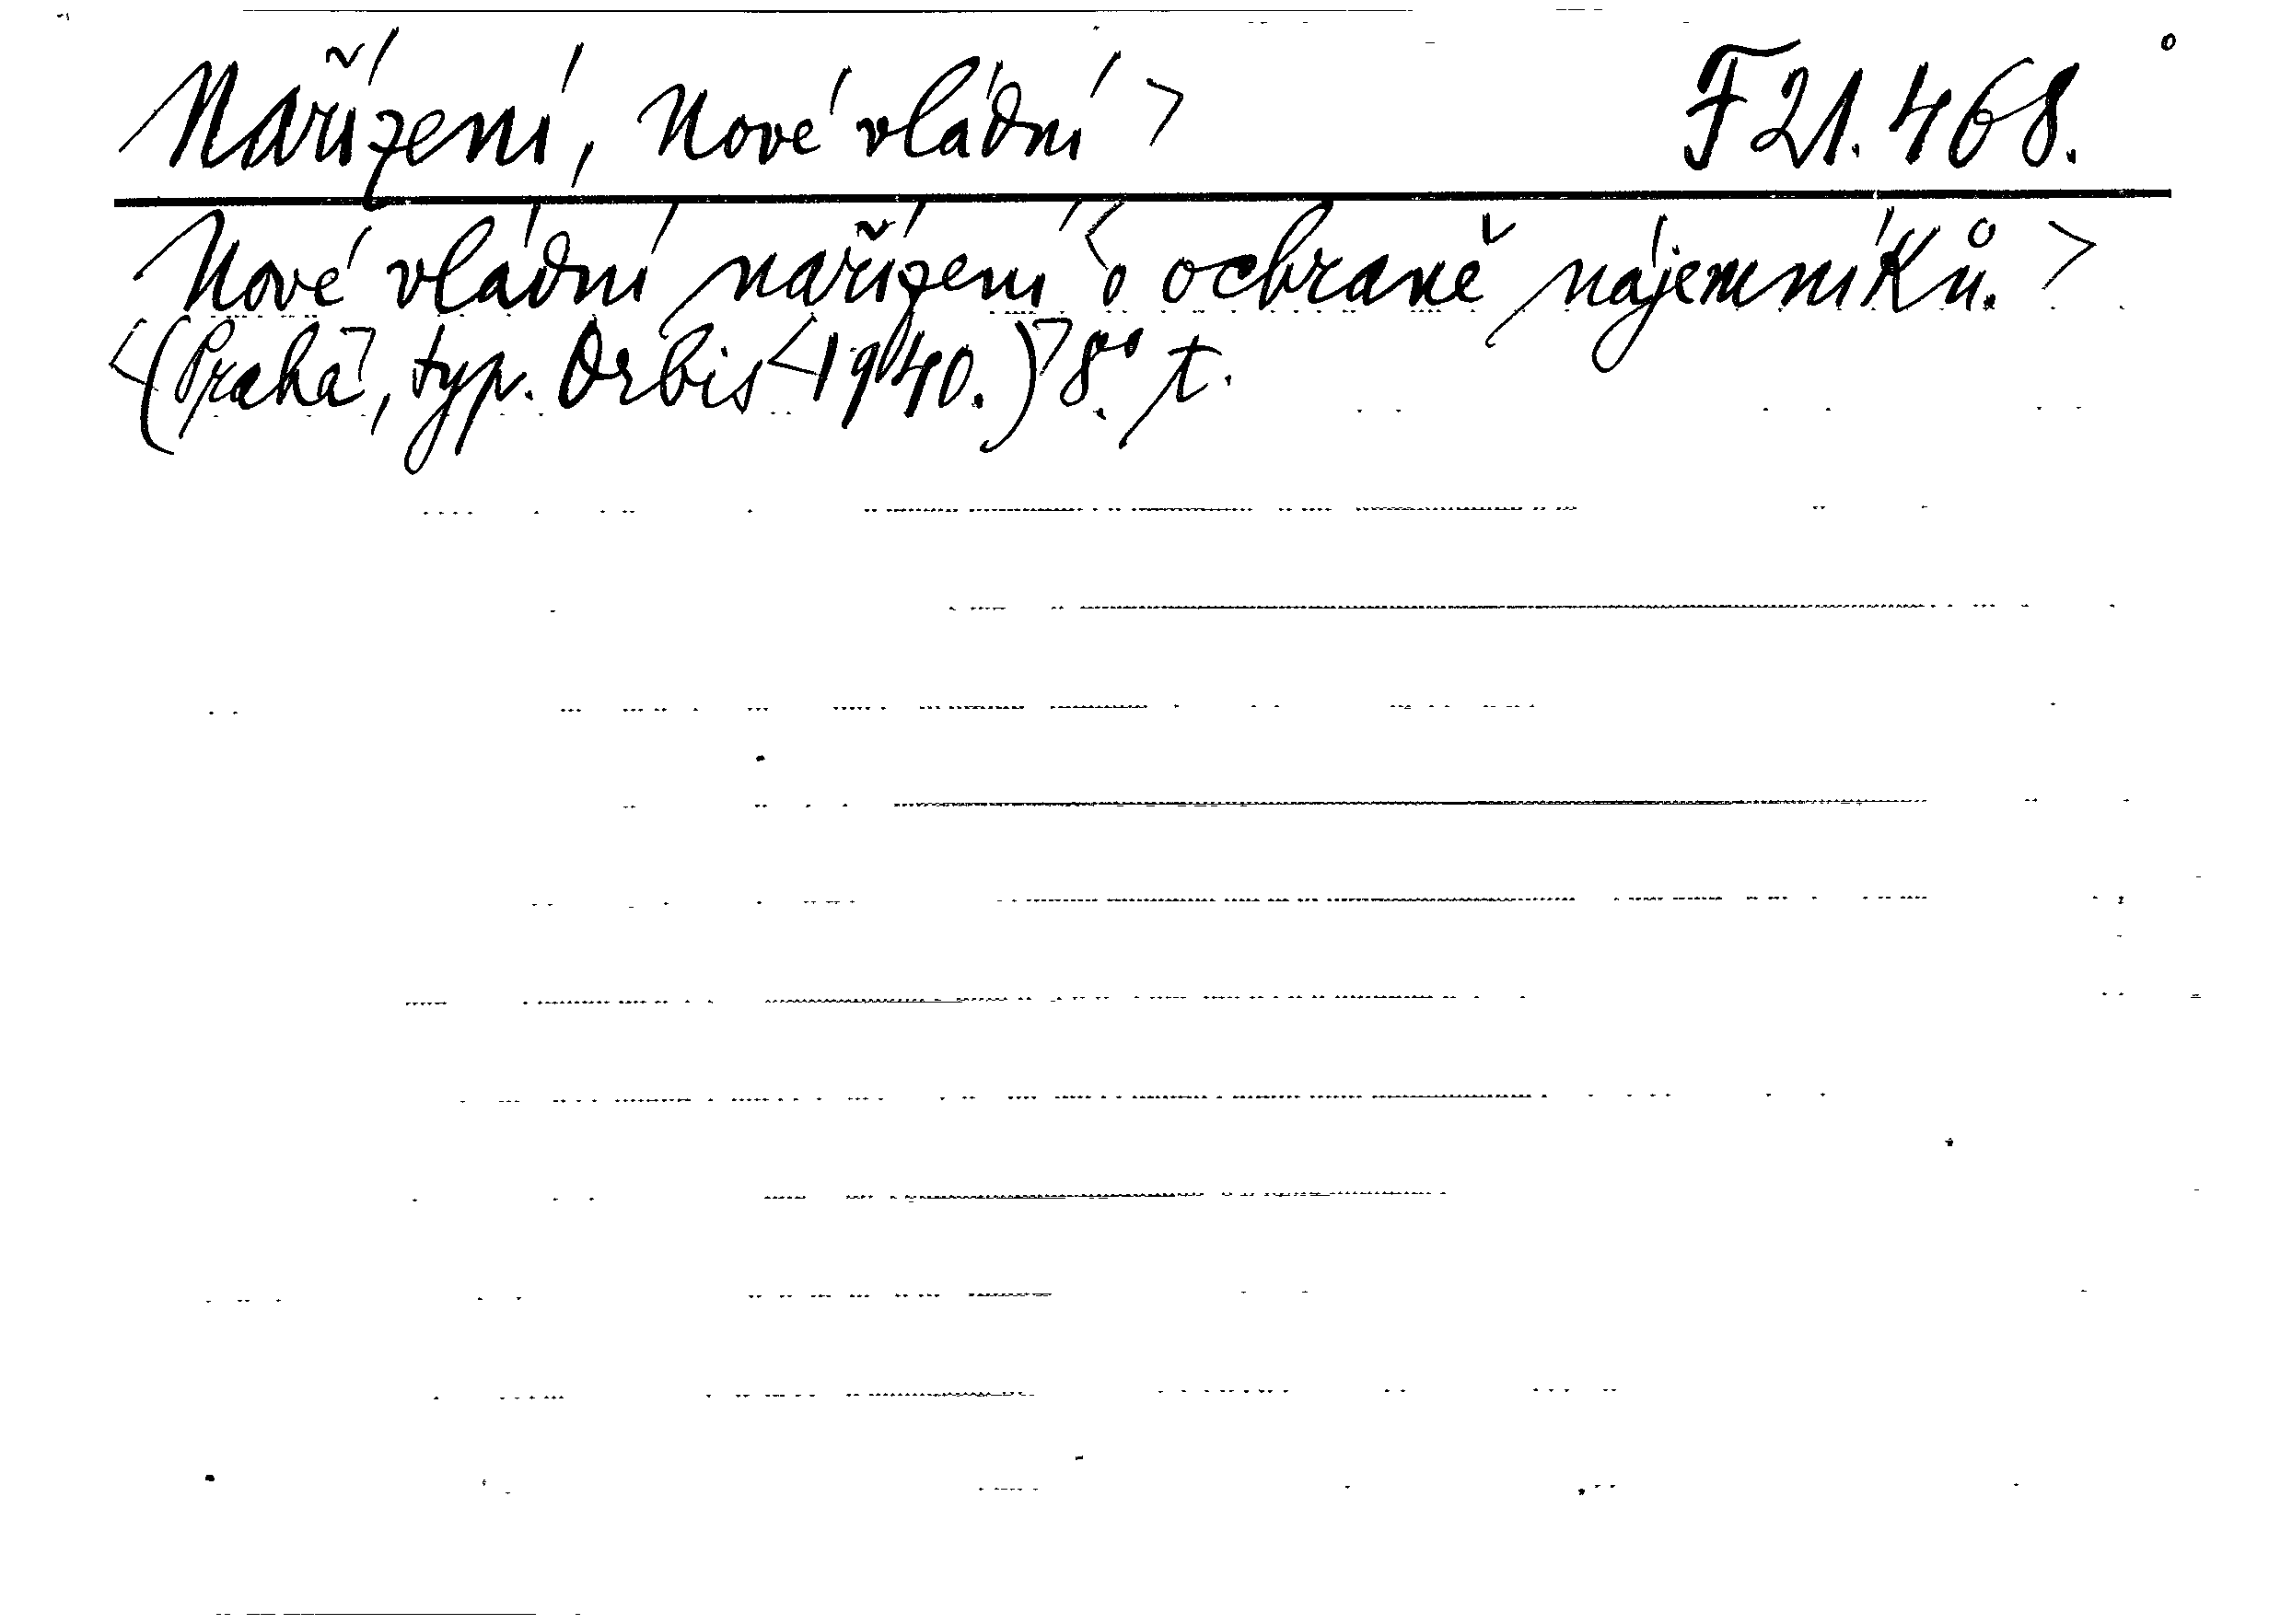 Nařízení, Nové vládní > F 21.468.
Nové vládní nařízení < o ochraně nájemníků. >
<(Praha>, typ. Orbis <1940.)> 8.° t.